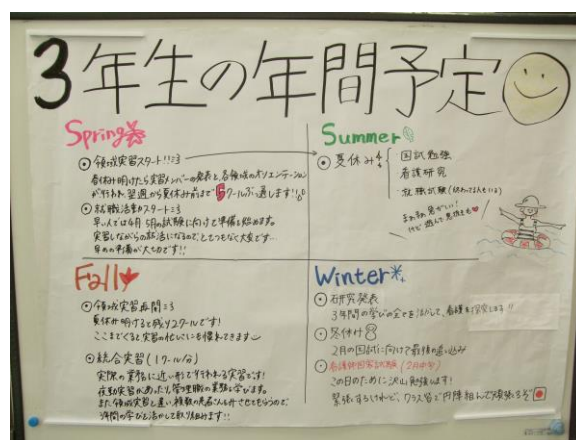 3年生の年間予定
Spring
⊙ 領域実習スタート!!
春休み明けたら実習メンバーの発表と、各領域のオリエンテーション
が行われ、翌週から夏休み前まで5クールぶっ通します!
⊙ 就職活動スタート
早い人では4月、5月の試験に向けて準備を始めます。
実習しながらの就活になるので、とてつもなく大変です…
早めの準備が大切です!!
Summer
⊙ 夏休み
国試勉強
看護研究
就職試験(終わってる人もいる)
まだまだ忙しい!
けど遊んで息抜きも
Fall
⊙ 領域実習再開
夏休み明けると残り2クールです!
ここまでくると実習の忙しさにも慣れてきます
⊙ 統合実習(1クール分)
実際の業務に近い形で行われる実習です!
夜勤実習があったり、管理職の業務も学びます。
また領域実習と違い、複数の患者さんを受けもたせてもらうので、
3年間の学びを活かして取り組みます!!
Winter
⊙ 研究発表
3年間の学びの全てを活かして、看護を探究します!!
⊙ 冬休み
2月の国試に向けて最後の追い込み
⊙ 看護師国家試験(2月中旬)
この日のために沢山勉強します!
緊張するけれど、クラス皆で円陣組んで頑張るぞ